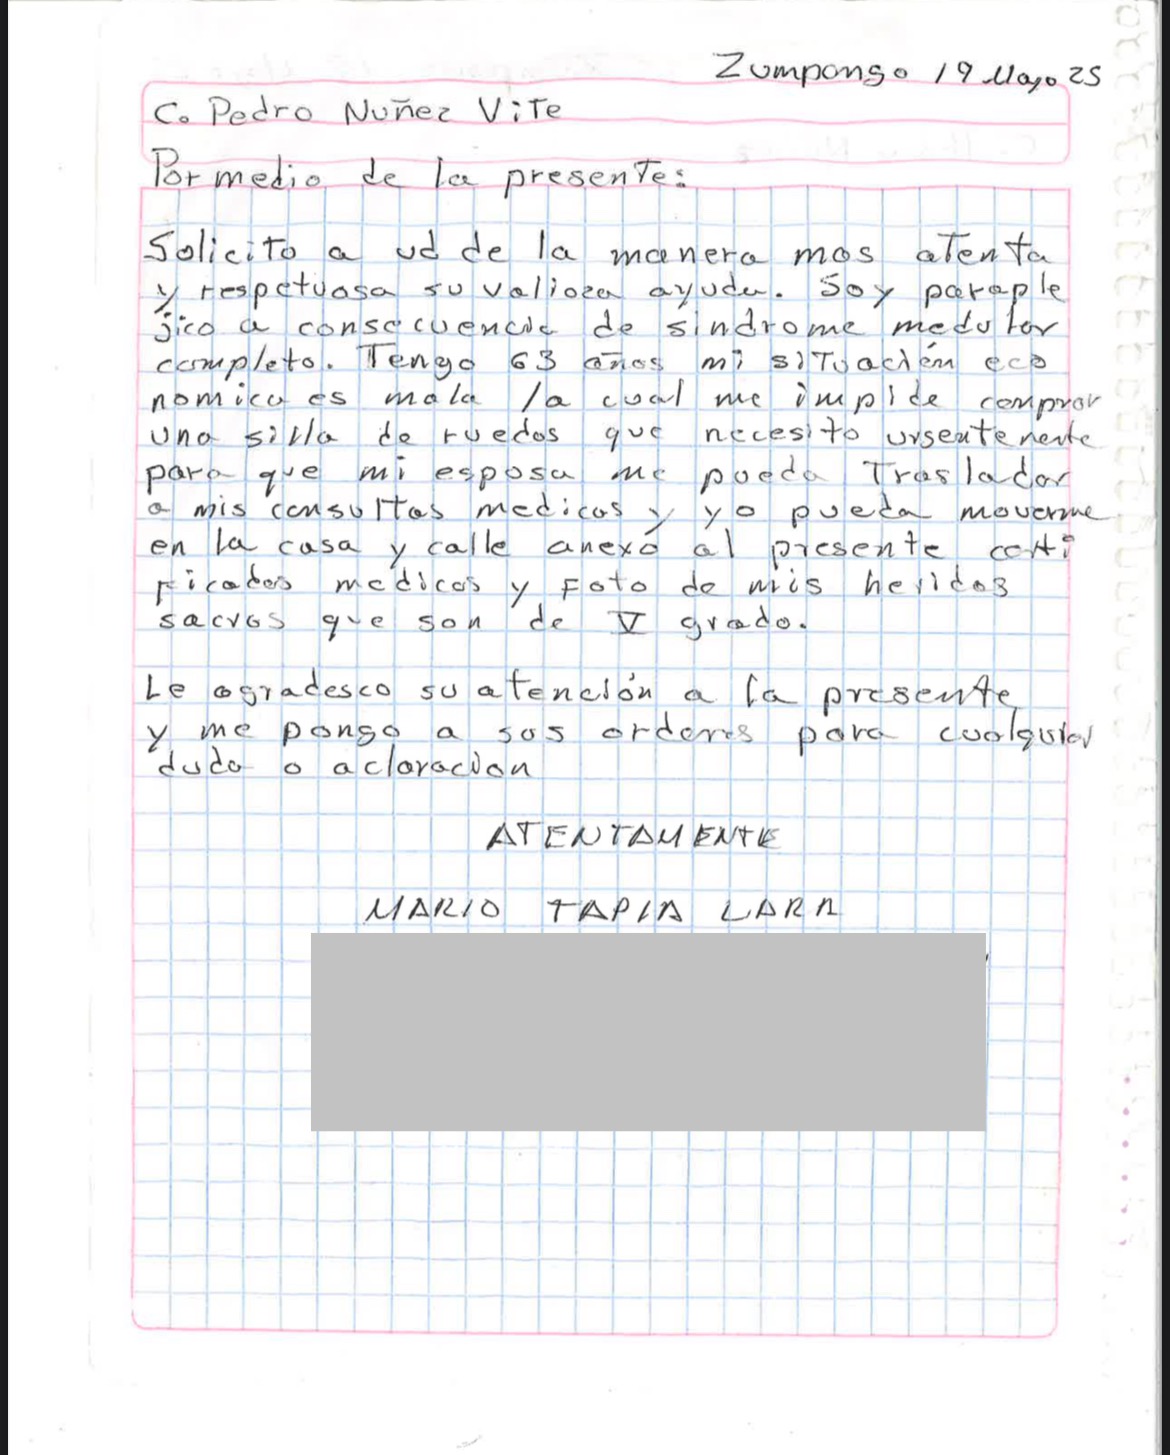 Zumpango 19 Mayo 25
C. Pedro Nuñez Vite
Por medio de la presente:
Solicito a ud de la manera mas atenta
y respetuosa su valioza ayuda. Soy paraple
jico a consecuencia de síndrome medular
completo. Tengo 63 años mi situación eco
nomica es mala la cual me impide comprar
una silla de ruedas que necesito urgentemente
para que mi esposa me pueda Trasladar
a mis consultas medicas y yo pueda moverme
en la casa y calle anexó al presente certi
ficados medicos y Foto de mis heridas
sacras que son de V grado.
Le agradesco su atención a la presente
y me pongo a sus ordenes para cualquier
duda o aclaración
ATENTAMENTE
MARIO TAPIA LARA